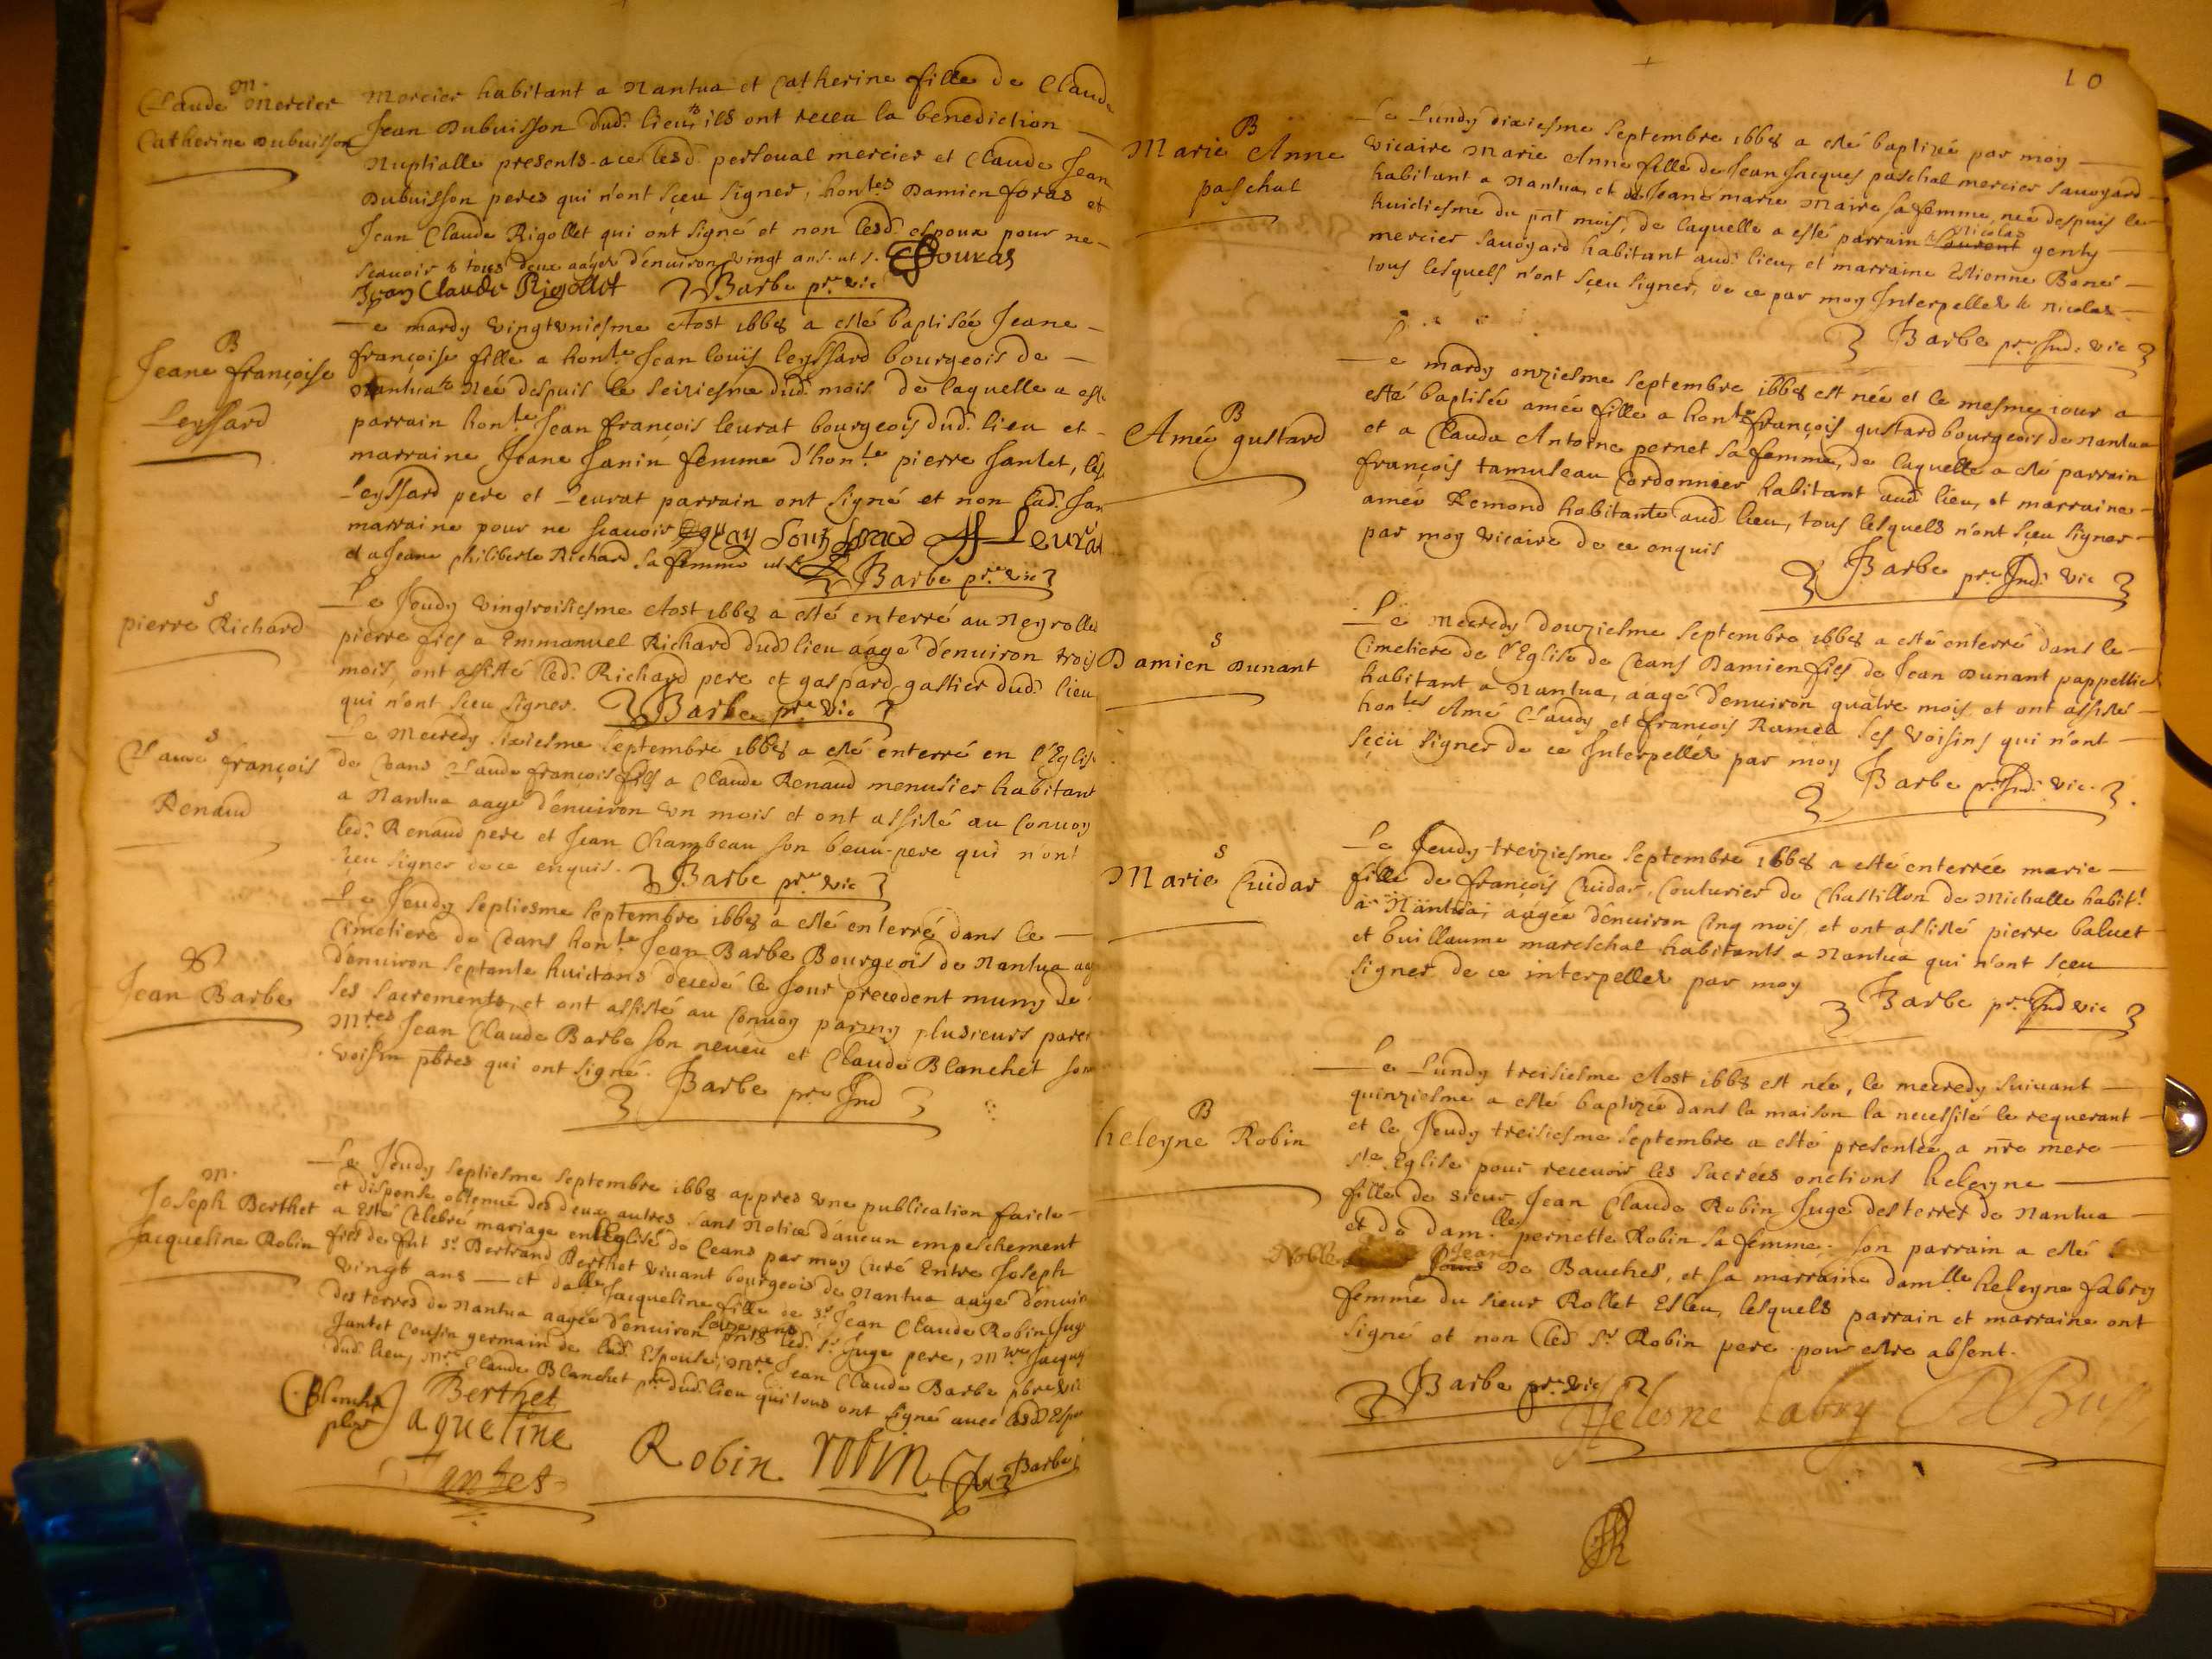 m.
Claude Mercier
Catherine Dubuisson
Mercier habitant a Nantua et Catherine fille de Claude
Jean Dubuisson dud. lieu, ils ont receu la benediction
Nuptialle presents a ce lesd. perseual mercier et Claude Jean
Dubuisson peres qui n'ont sçeu signer, hon.tes Damien foras et
Jean Claude Rigollet qui ont signé et non lesd. espoux pour ne
scauoir & tous deux aagés d'enuiron vingt ans. ut s. Fouras
Jean Claude Rigollet Barbe pr.e vic
B
Jeane françoise
Leyssard
Le mardy vingtvniesme Aost 1668 a esté baptisée Jeane
françoise fille a hon.te Jean louis leyssard bourgeois de
Nantua Née despuis le seiziesme dud. mois de laquelle a esté
parrain hon.te Jean françois leurat bourgeois dud. lieu et
marraine Jeane Janin femme d'hon.te pierre Jantet, les
Leyssard pere et Leurat parrain ont signé et non lad. Jan
marraine pour ne scauoir Leurat
et a Jeane philiberte Richard sa femme ut s. Barbe pr.e vic
S
pierre Richard
Le Jeudy vingtroisiesme Aost 1668 a esté enterré au Neyrolles
pierre fils a Emmanuel Richard dud. lieu aagé d'enuiron trois
mois, ont assisté led. Richard pere et gaspard gastier dud. lieu
qui n'ont sçeu signer. Barbe pr.e vic
S
Claude françois
Renaud
Le Mecredy sixiesme septembre 1668 a esté enterré en l'Eglise
de Ceans Claude françois fils a Claude Renaud menusier habitant
a Nantua aagé d'enuiron vn mois et ont assisté au conuoy
led. Renaud pere et Jean Chambeau son beau-pere qui n'ont
sçeu signer de ce enquis. Barbe pr.e vic
S
Jean Barbe
Le Jeudy septiesme septembre 1668 a esté enterré dans le
Cimetiere de Ceans hon.te Jean Barbe Bourgeois de Nantua aag
d'enuiron septante huict ans decedé le Jour precedent muny de
ses sacrements, et ont assisté au conuoy parmy plusieurs paren
M.res Jean Claude Barbe son neueu et Claude Blanchet son
voisin pbres qui ont signé. Barbe pr.e Ind
m.
Joseph Berthet
Jacqueline Robin
Le Jeudy septiesme septembre 1668 appres vne publication faicte
et dispense obtenue des deux autres sans Notice d'aucun empeschement
a Esté Celebré mariage en l'Eglise de Ceans par moy Curé Entre Joseph
fils de fut s.r Bertrand Berthet viuant bourgeois de Nantua aagé d'enuiro
vingt ans — et da.lle Jacqueline fille de s.r Jean Claude Robin Juge
des terres de Nantua aagée d'enuiron seize ans pnts led. s.r Juge pere, M.re Jacques
Jantet Cousin germain de lad. Espouse, M.re Jean Claude Barbe pbre vic
dud. lieu, M.re Claude Blanchet pr.e dud. lieu qui tous ont signé auec lesd. Espou
Blanchet pbre Berthet
Jaqueline Robin robin Barbe
Jantet
10
B
Marie Anne
paschal
Le Lundy dixiesme septembre 1668 a esté baptizée par moy
vicaire Marie Anne fille de Jean Jacques paschal mercier sauoyard
habitant a Nantua, et de Jeane marie Maire sa femme, née despuis le
huictiesme du pnt mois, de laquelle a esté parrain Laurent Nicolas genty
mercier sauoyard habitant aud. lieu, et marraine Estienne Bené
tous lesquels n'ont sçeu signer, de ce par moy Interpellés & nicolas
Barbe pr.e Ind. vic
B
Amée gustard
Le mardy onziesme septembre 1668 est née et le mesme iour a
esté baptisée amée fille a hon.te françois gustard bourgeois de Nantua
et a Claude Antoine pernet sa femme, de laquelle a esté parrain
françois tamuleau Cordonnier habitant aud. lieu, et marraine
amée Remond habitante aud. lieu, tous lesquels n'ont sçeu signer
par moy vicaire de ce enquis
Barbe pr.e Ind. vic
S
Damien Dunant
Le Mecredy douziesme septembre 1668 a esté enterré dans le
Cimetiere de l'Eglise de Ceans Damien fils de Jean Dunant pappettier
habitant a Nantua, aagé d'enuiron quatre mois, et ont assisté
hon.tes Amé Claudy et françois Ramel ses voisins qui n'ont
sçeu signer de ce Interpellés par moy
Barbe pr.e Ind. vic.
S
Marie Cuidar
Le Jeudy treiziesme septembre 1668 a esté enterrée marie
fille de françois Cuidar, Couturier de Chastillon de Michalle habit.t
a Nantua, aagée d'enuiron cinq mois, et ont assisté pierre baluet
et buillaume mareschal habitants a Nantua qui n'ont sçeu
signer de ce interpellés par moy
Barbe pr.e Ind vic
B
heleyne Robin
Le Lundy treisiesme Aost 1668 est née, le mecredy suiuant
quinziesme a esté baptizée dans la maison la necessité le requerant
et le Jeudy treisiesme septembre a esté presentée a nre mere
s.te Eglise pour receuoir les sacrées onctions heleyne
fille de sieur Jean Claude Robin Juge des terres de Nantua
et de dam.lle pernette Robin sa femme. son parrain a esté
Noble Jean De Bauches, et sa marraine dam.lle heleyne fabry
femme du sieur Rollet Esleu, lesquels parrain et marraine ont
signé et non led. s.r Robin pere pour estre absent.
Barbe pr.e vic
Helesne fabry